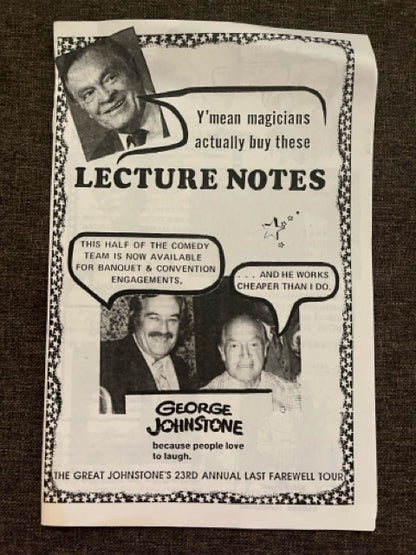 Y'mean magicians
actually buy these
LECTURE NOTES
THIS HALF OF THE COMEDY
TEAM IS NOW AVAILABLE
FOR BANQUET & CONVENTION
ENGAGEMENTS.
. . . AND HE WORKS
CHEAPER THAN I DO.
GEORGE
JOHNSTONE
because people love
to laugh.
THE GREAT JOHNSTONE'S 23RD ANNUAL LAST FAREWELL TOUR